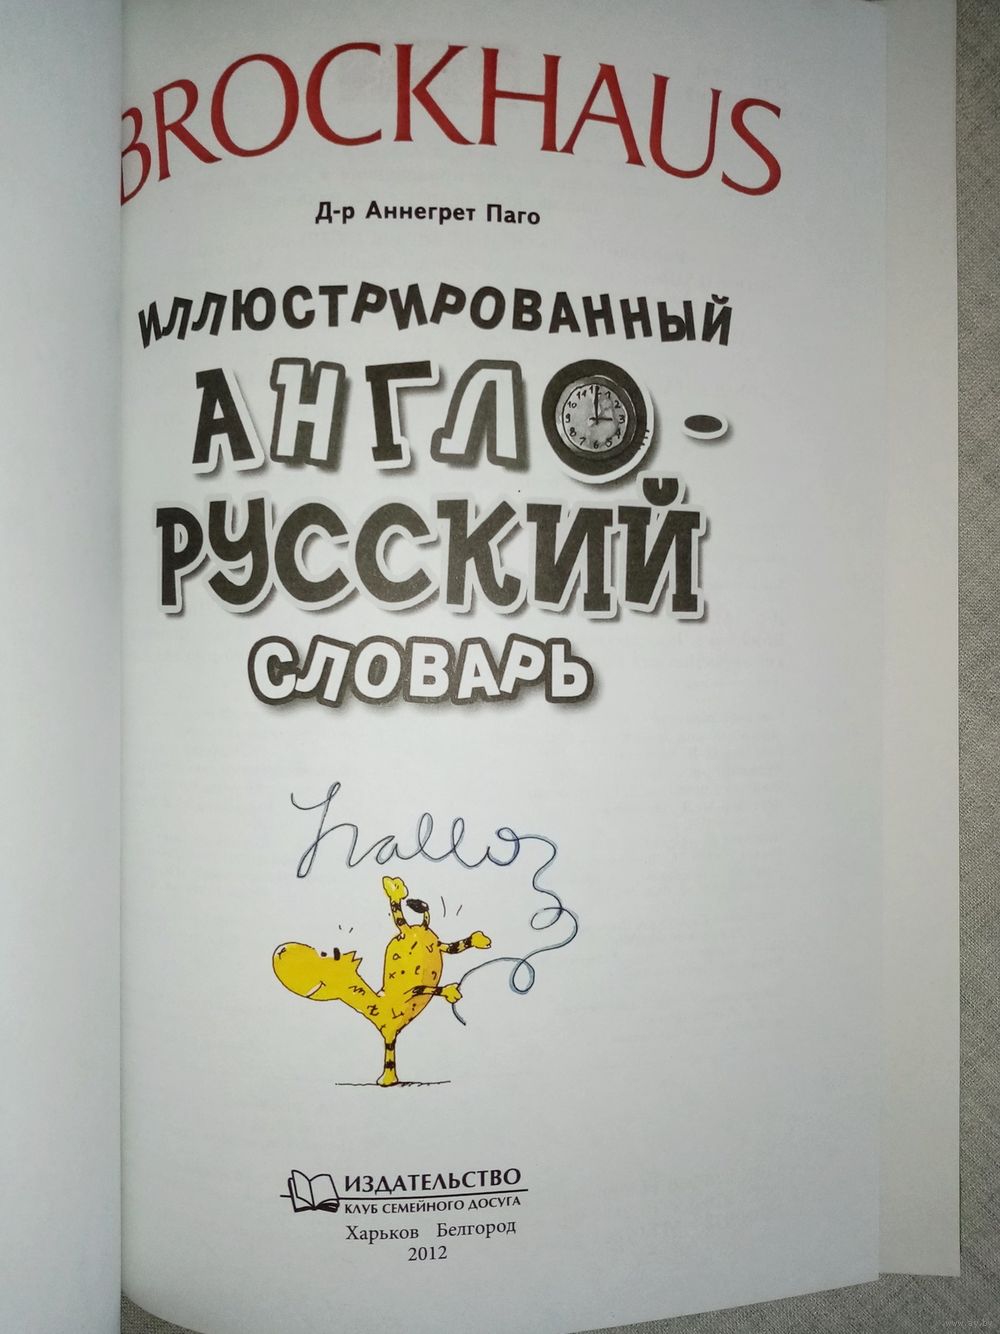 BROCKHAUS
Д-р Аннегрет Паго
ИЛЛЮСТРИРОВАННЫЙ
АНГЛО-
РУССКИЙ
СЛОВАРЬ
hallo
ИЗДАТЕЛЬСТВО
КЛУБ СЕМЕЙНОГО ДОСУГА
Харьков Белгород
2012
www.ay.by